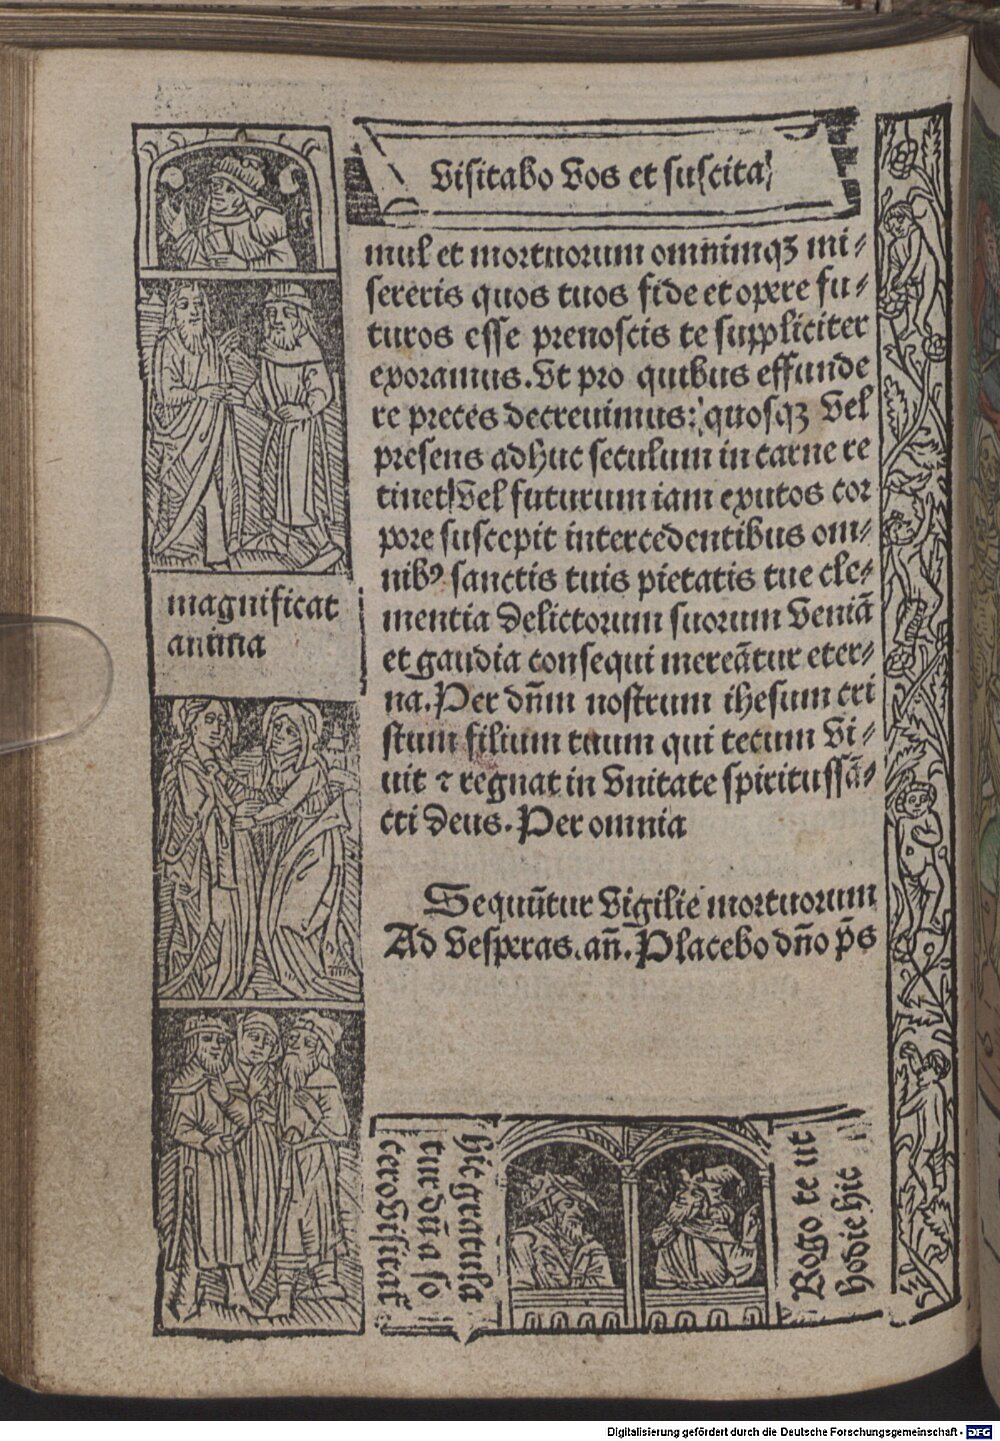 Visitabo Vos et suscita
mul et mortuorum omnimqꝫ mi⸗
sereris quos tuos fide et opere fu⸗
turos esse prenoscis te suppliciter
exoramus. Vt pro quibus effunde
re preces decreuimus: quosqꝫ Vel
presens adhuc seculum in carne re
tinet Vel futurum iam exutos cor
pore suscepit intercedentibus om⸗
nibꝰ sanctis tuis pietatis tue cle⸗
mentia delictorum suorum Veniā
et gaudia consequi mereātur eter⸗
na. Per dn̄m nostrum ihesum cri
stum filium tuum qui tecum Vi⸗
uit ⁊ regnat in Vnitate spiritussā⸗
cti deus. Per omnia
Sequūtur Vigilie mortuorum
Ad Vesperas. an̄. Placebo dn̄o p̄s
magnificat
anima
hic gratula
tur dn̄a so
Rogo te ut
hodie hic
Digitalisierung gefördert durch die Deutsche Forschungsgemeinschaft - DFG